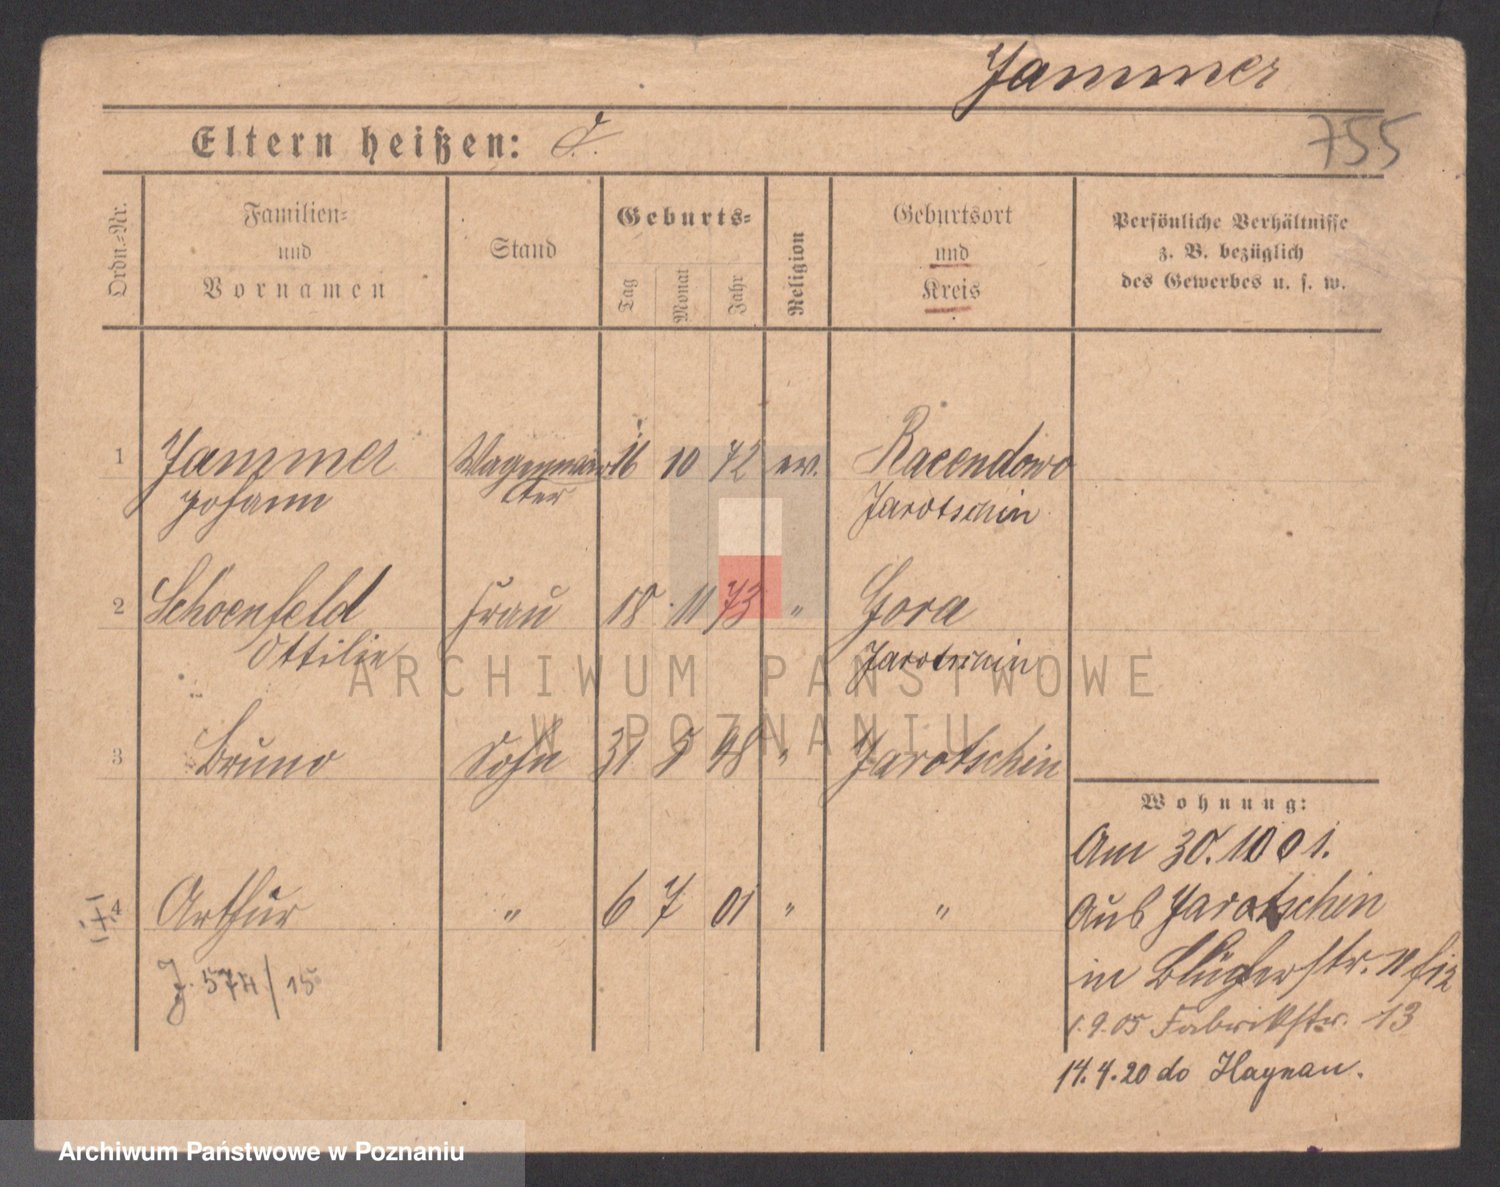 Jammer
755
Eltern heißen:
Ordn.=Nr.
Familien=
und
Vornamen
Stand
Geburts=
Tag
Monat
Jahr
Religion
Geburtsort
und
Kreis
Persönliche Verhältnisse
z. B. bezüglich
des Gewerbes u. s. w.
1 Jammer 16 10 72 ev. Racendowo
Johann Jarotschin
2 Schoenfeld Frau 18 11 73 " Gora
Ottilie Jarotschin
3 Bruno Sohn 31 5 98 " Jarotschin
4 Arthur " 6 7 01 " "
J. 574/15
Wohnung:
Am 30.10 01.
Aus Jarotschin
in
1.9.05 Fabrikstr. 13
14.4.20 do Haynau.
ARCHIWUM PAŃSTWOWE
W POZNANIU
Archiwum Państwowe w Poznaniu